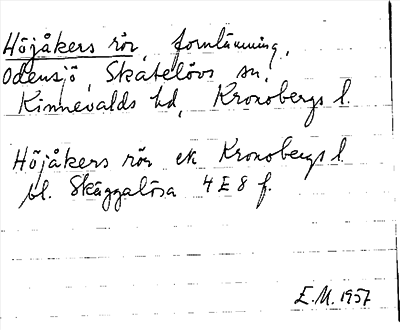 Höjåkers rör, fornlämning,
Odensjö, Skatelövs sn,
Kinnevalds hd, Kronobergs l.
Höjåkers rör ek Kronobergs l.
bl. Skäggalösa 4 E 8 f.
E.M. 1957